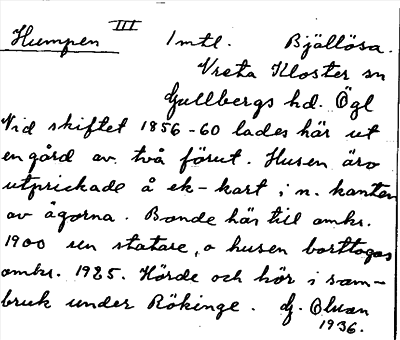 Humpen III Imtl. Bjällösa.
Vreta Kloster sn
Gullbergs hd. Ögl
Vid skiftet 1856-60 lades här ut
en gård av två förut. Husen äro
utprickade å ek-kart i n. kanten
av ägorna. Bonde här till omkr.
1900 sen statare, o husen borttogos
omkr. 1925. Hörde och hör i sam-
bruk under Rökinge. G. Olson
1936.